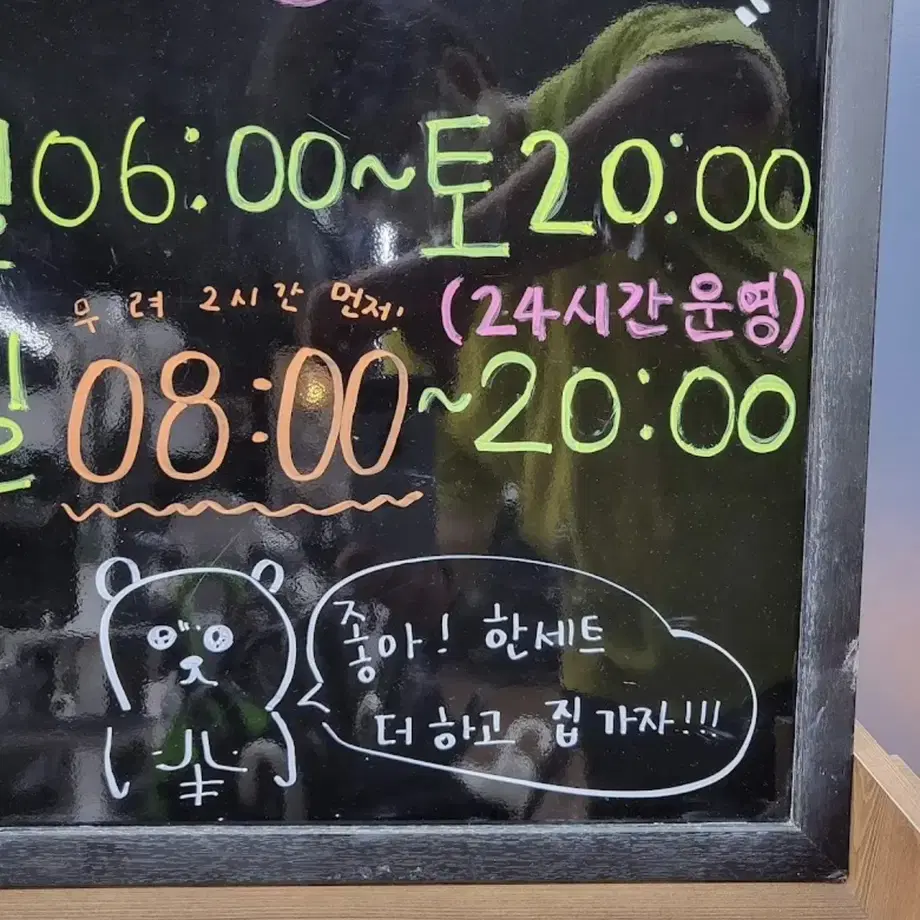 06:00~토 20:00
무려 2시간 먼저!
(24시간 운영)
일 08:00~20:00
좋아! 한세트
더 하고 집 가자!!!